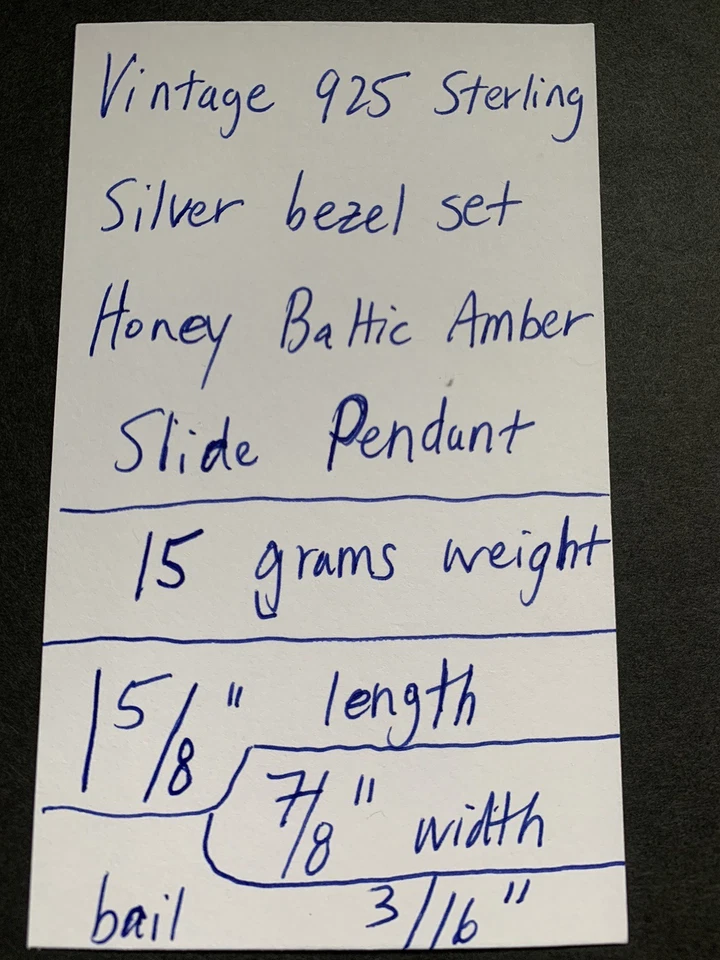 Vintage 925 Sterling
Silver bezel set
Honey Baltic Amber
Slide Pendant
15 grams weight
1 5/8" length
7/8" width
bail 3/16"